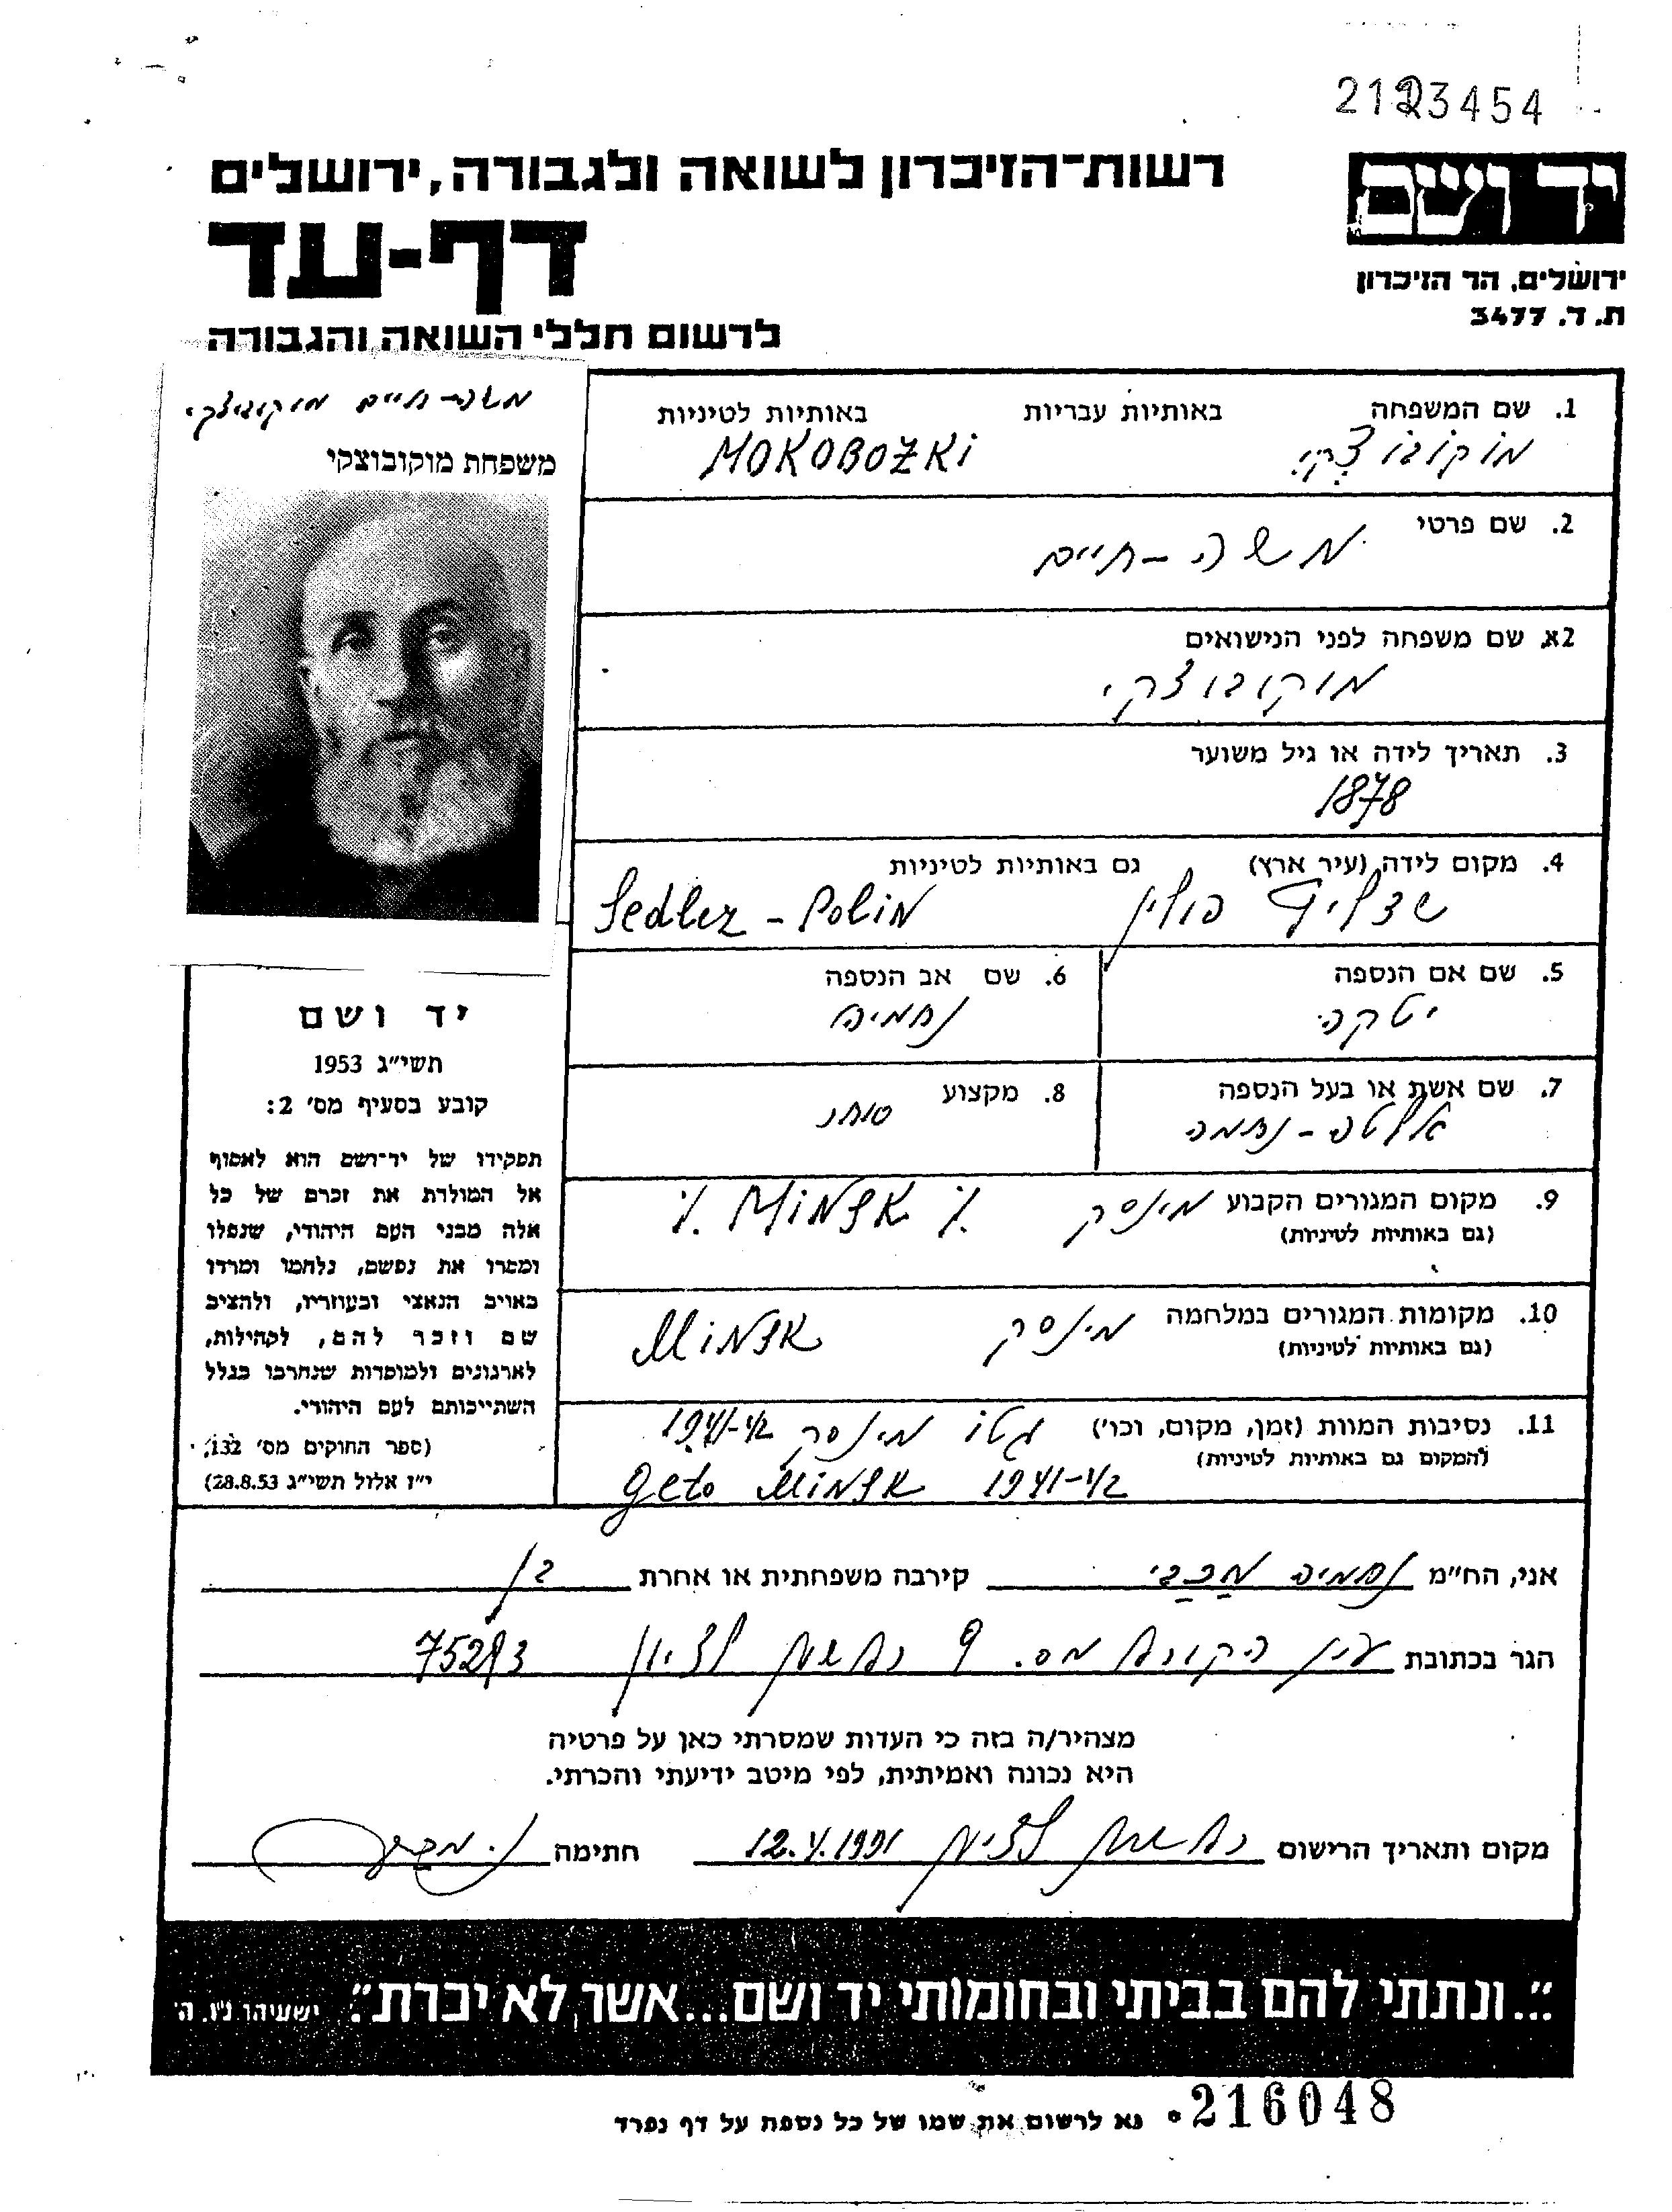 2123454
רשות־הזיכרון לשואה ולגבורה, ירושלים
יד ושם
דף-עד
ירושלים, הר הזיכרון
ת. ד. 3477
לרשום חללי השואה והגבורה
משה-חיים מוקובוצקי
משפחת מוקובוצקי
1. שם המשפחה באותיות עבריות באותיות לטיניות
מוקובוצקי MOKOBOZKi
2. שם פרטי
משה-חיים
2א. שם משפחה לפני הנישואים
מוקובוצקי
3. תאריך לידה או גיל משוער
1878
4. מקום לידה (עיר ארץ) גם באותיות לטיניות
פולין Sedlez - Polin
5. שם אם הנספה 6. שם אב הנספה
יטקה נחמיה
7. שם אשת או בעל הנספה 8. מקצוע
אלטה-נחמה סוחר
9. מקום המגורים הקבוע מינסק Minsk
(גם באותיות לטיניות)
10. מקומות המגורים במלחמה מינסק Minsk
(גם באותיות לטיניות)
11. נסיבות המוות (זמן, מקום, וכו') גטו מינסק 1941-42
(המקום גם באותיות לטיניות)
geto Minsk 1941-42
יד ושם
תשי״ג 1953
קובע בסעיף מס׳ 2:
תפקידו של יד־ושם הוא לאסוף
אל המולדת את זכרם של כל
אלה מבני העם היהודי, שנפלו
ומסרו את נפשם, נלחמו ומרדו
באויב הנאצי ובעוזריו, ולהציב
שם וזכר להם, לקהילות,
לארגונים ולמוסדות שנחרבו בגלל
השתייכותם לעם היהודי.
(ספר החוקים מס׳ 132,
י״ז אלול תשי״ג 28.8.53)
אני, הח״מ נחמיה מכבי קירבה משפחתית או אחרת בן
הגר בכתובת עין הקורא מס. 9 ראשון לציון 75293
מצהיר/ה בזה כי העדות שמסרתי כאן על פרטיה
היא נכונה ואמיתית, לפי מיטב ידיעתי והכרתי.
מקום ותאריך הרישום ראשון לציון 12.V.1991 חתימה נ. מכבי
״...ונתתי להם בביתי ובחומותי יד ושם...אשר לא יכרת״. ישעיהו נ״ו, ה׳
נא לרשום את שמו של כל נספה על דף נפרד • 216048